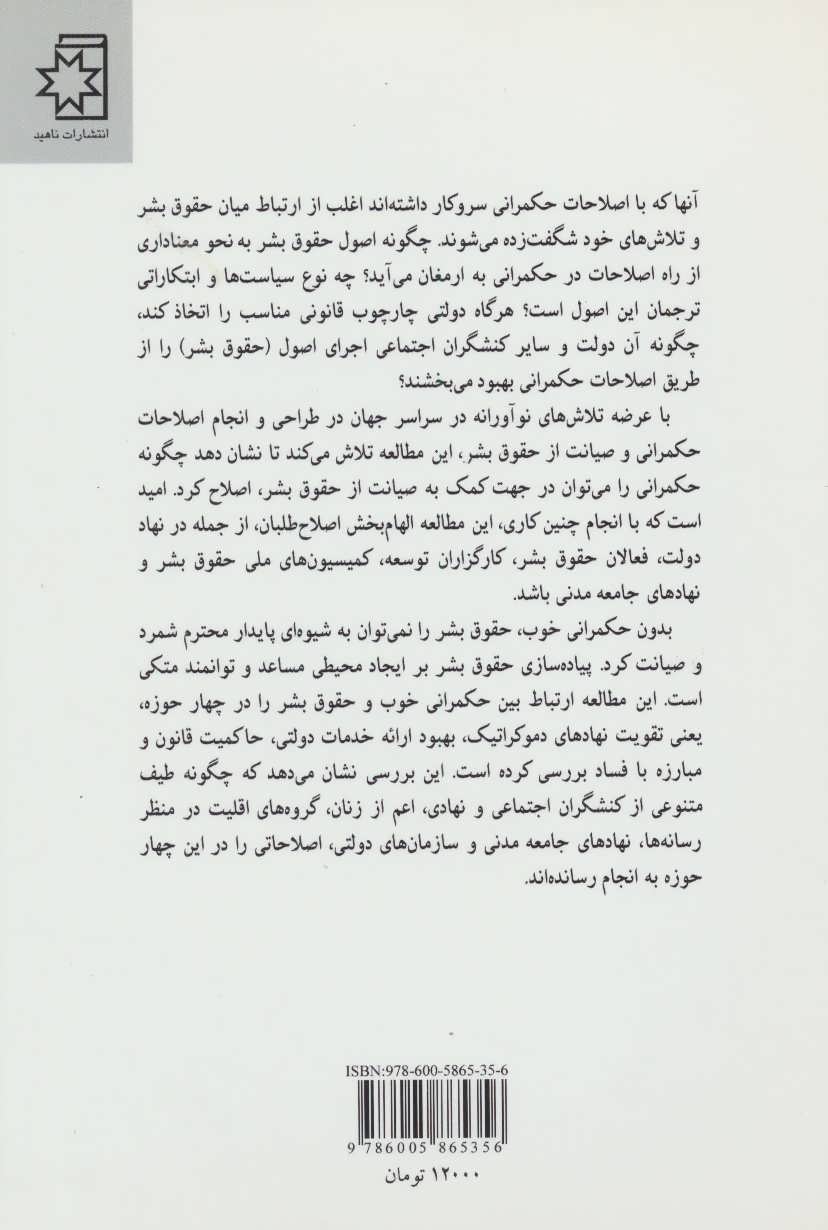 انتشارات ناهید
آنها که با اصلاحات حکمرانی سروکار داشته‌اند اغلب از ارتباط میان حقوق بشر
و تلاش‌های خود شگفت‌زده می‌شوند. چگونه اصول حقوق بشر به نحو معناداری
از راه اصلاحات در حکمرانی به ارمغان می‌آید؟ چه نوع سیاست‌ها و ابتکاراتی
ترجمان این اصول است؟ هرگاه دولتی چارچوب قانونی مناسب را اتخاذ کند،
چگونه آن دولت و سایر کنشگران اجتماعی اجرای اصول (حقوق بشر) را از
طریق اصلاحات حکمرانی بهبود می‌بخشند؟
با عرضه تلاش‌های نوآورانه در سراسر جهان در طراحی و انجام اصلاحات
حکمرانی و صیانت از حقوق بشر، این مطالعه تلاش می‌کند تا نشان دهد چگونه
حکمرانی را می‌توان در جهت کمک به صیانت از حقوق بشر، اصلاح کرد. امید
است که با انجام چنین کاری، این مطالعه الهام‌بخش اصلاح‌طلبان، از جمله در نهاد
دولت، فعالان حقوق بشر، کارگزاران توسعه، کمیسیون‌های ملی حقوق بشر و
نهادهای جامعه مدنی باشد.
بدون حکمرانی خوب، حقوق بشر را نمی‌توان به شیوه‌ای پایدار محترم شمرد
و صیانت کرد. پیاده‌سازی حقوق بشر بر ایجاد محیطی مساعد و توانمند متکی
است. این مطالعه ارتباط بین حکمرانی خوب و حقوق بشر را در چهار حوزه،
یعنی تقویت نهادهای دموکراتیک، بهبود ارائه خدمات دولتی، حاکمیت قانون و
مبارزه با فساد بررسی کرده است. این بررسی نشان می‌دهد که چگونه طیف
متنوعی از کنشگران اجتماعی و نهادی، اعم از زنان، گروه‌های اقلیت در منظر
رسانه‌ها، نهادهای جامعه مدنی و سازمان‌های دولتی، اصلاحاتی را در این چهار
حوزه به انجام رسانده‌اند.
ISBN:978-600-5865-35-6
9 786005 865356
۱۲۰۰۰ تومان